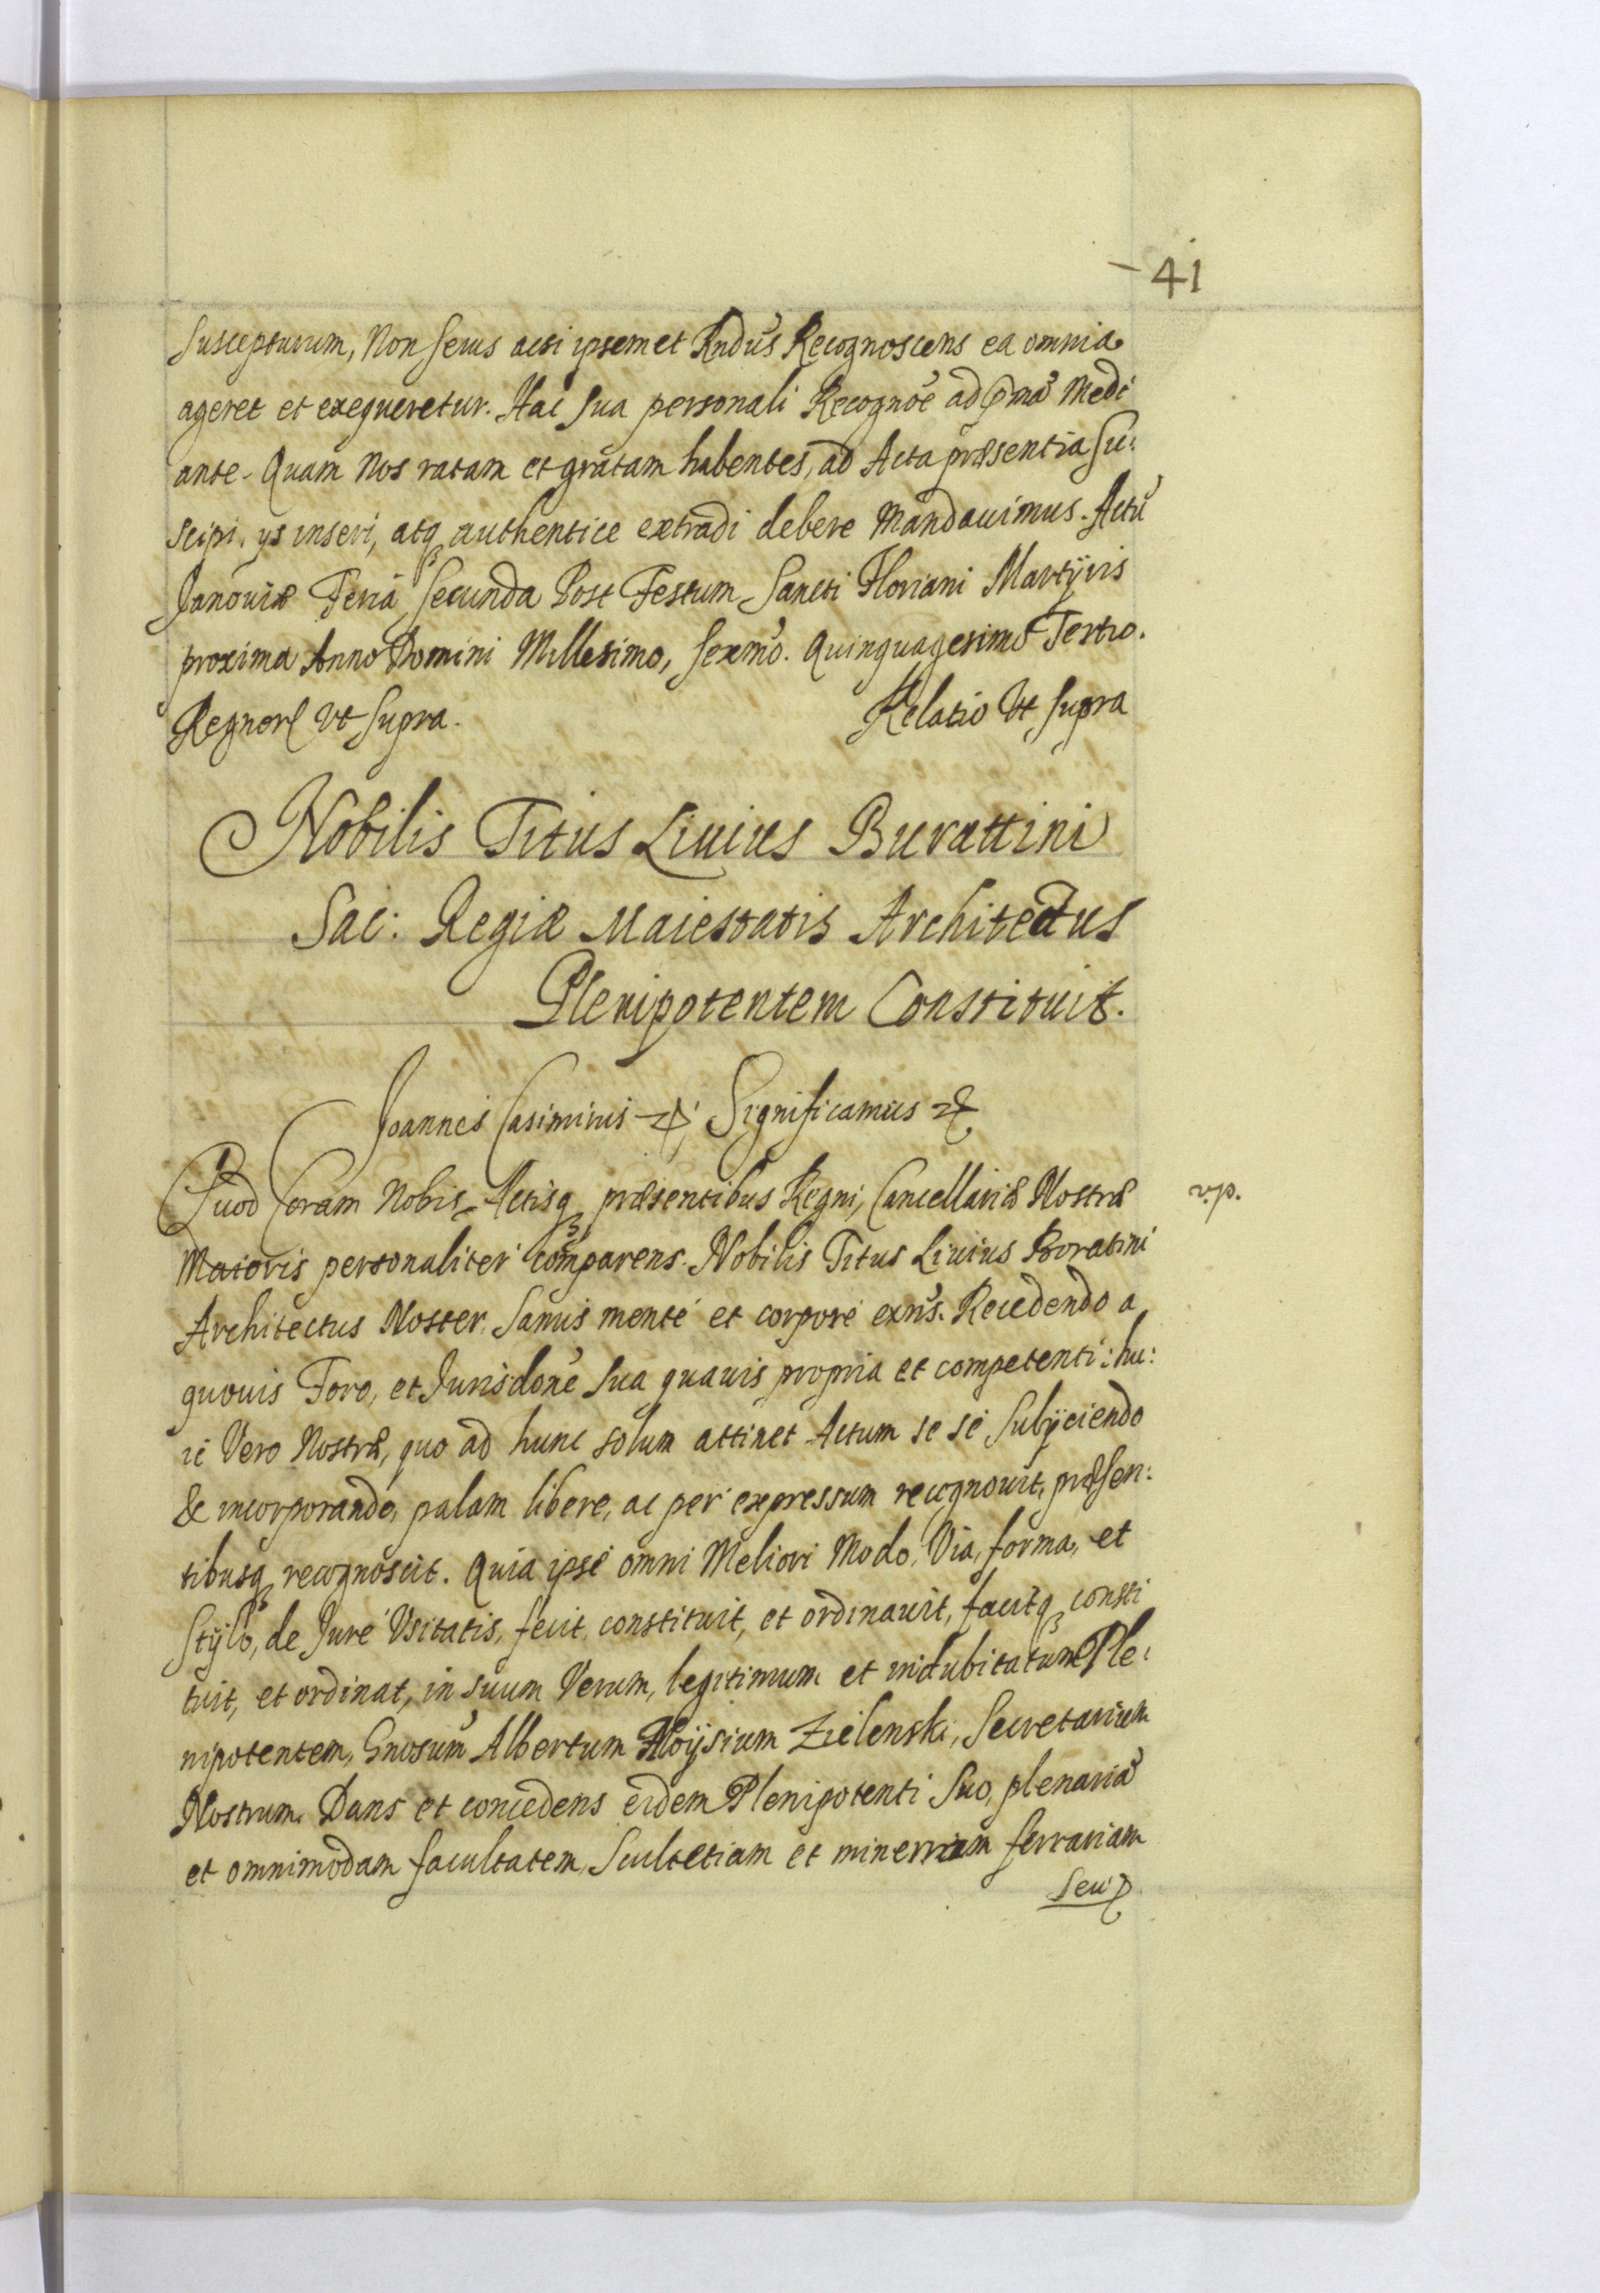 41
Suscepturum, Non secus acsi ipsemet Rndus Recognoscens ea omnia
ageret et exequeretur. Hac sua personali Recognoe ad pmã Medi
ante. Quam Nos ratam et gratam habentes, ad Acta præsentia su:
scipi, ys inseri, atq authentice extradi debere Mandauimus. Actũ
Janoviæ Feriâ secunda Post Festum Sancti Floriani Martÿris
proxima Anno Domini Millesimo, sexmo. Quinquagesimo Tertio.
Regnor Vt supra. Relatio Vt supra
Nobilis Titus Liuius Burattini
Sac: Regiæ Maiestatis Architectus
Plenipotentem Constituit.
Joannes Casimirus Significamus
Quod Coram Nobis Actisq præsentibus Regni, Cancellariæ Nostræ
Maioris personaliter comparens. Nobilis Titus Liuius Boratini
Architectus Noster, Sanus mente et corpore exns. Recedendo a
quouis Foro, et Jurisdone sua quauis propria et competenti: hu:
ic Vero Nostræ, quo ad hunc solum attinet Actum se se Subÿciendo
& incorporando, palam libere, ac per expressum recognouit, præsen:
tibusq recognoscit. Quia ipse omni Meliori Modo, Via, forma, et
Stÿlo, de Jure Vsitatis, fecit, constituit, et ordinauit, facitq consti
tuit, et ordinat, in suum Verum, legitimum et indubitatum Ple:
nipotentem, Gnosum Albertum Aloÿsium Zielenski, Secretarium
Nostrum. Dans et concedens eidem Plenipotenti Suo, plenariã
et omnimodam facultatem, Scultetiam et minerriam ferrariam
seu